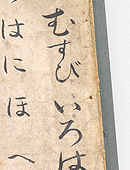 むすび いろは
はにほへ